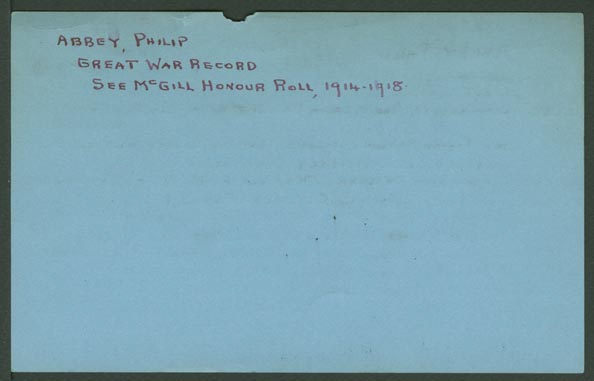 ABBEY, PHILIP
GREAT WAR RECORD
SEE MCGILL HONOUR ROLL, 1914-1918.